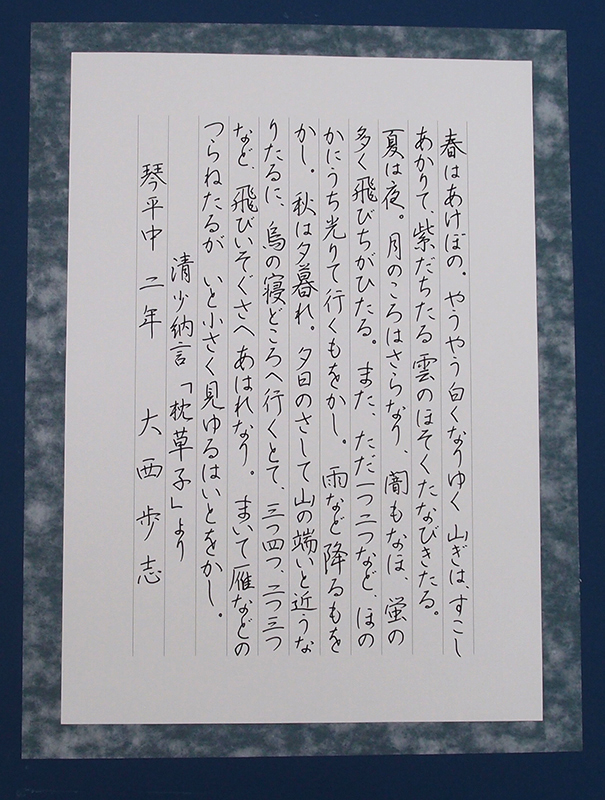 春はあけぼの。やうやう白くなりゆく山ぎは、すこし
あかりて、紫だちたる雲のほそくたなびきたる。
夏は夜。月のころはさらなり、闇もなほ、蛍の
多く飛びちがひたる。また、ただ一つ二つなど、ほの
かにうち光りて行くもをかし。雨など降るもを
かし。秋は夕暮れ。夕日のさして山の端いと近うな
りたるに、烏の寝どころへ行くとて、三つ四つ、二つ三つ
など、飛びいそぐさへあはれなり。まいて雁などの
つらねたるが いと小さく見ゆるはいとをかし。
清少納言「枕草子」より
琴平中 二年 大西歩志